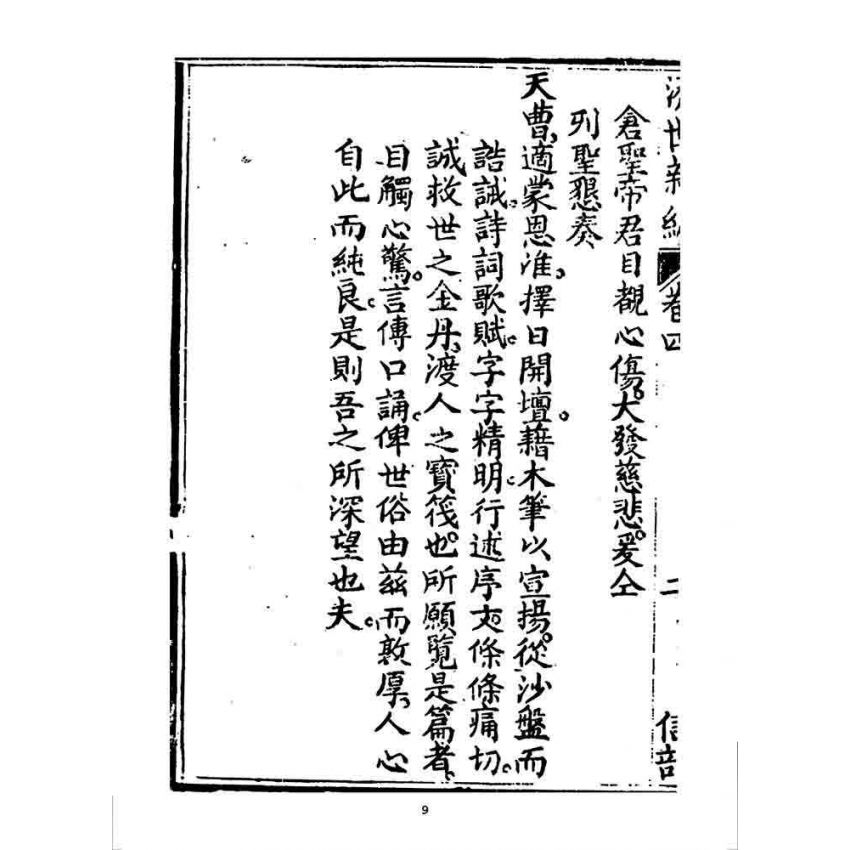 濟世新編 卷四 二 信部
倉聖帝君目覩心傷。大發慈悲。爰仝
列聖懇奏
天曹、適蒙恩准、擇日開壇。藉木筆以宣揚。從沙盤而
誥誡。詩詞歌賦。字字精明。行述序文條條痛切。
誠救世之金丹、渡人之寳筏也。所願覽是篇者、
目觸心驚。言傳口誦。俾世俗由茲而敦厚、人心
自此而純良。是則吾之所深望也夫。
9